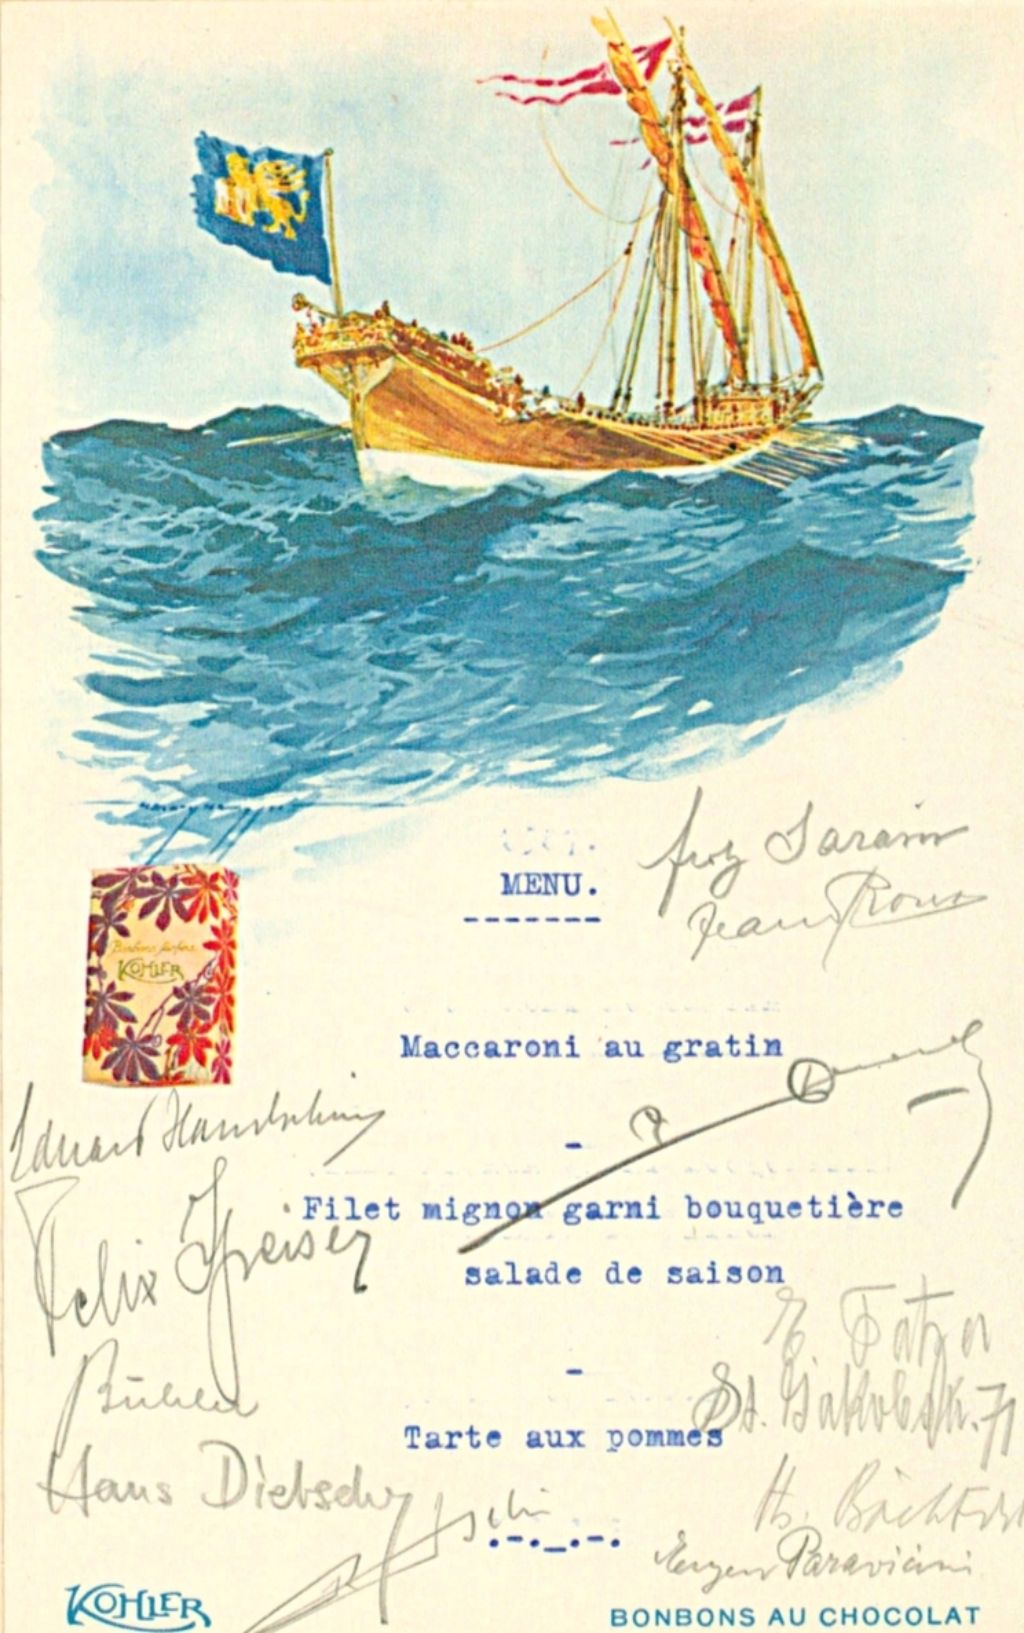 MENU.
Fritz Sarasin
Jean Roux
Bonbons
KOHLER
Maccaroni au gratin
-
Eduard Handschin
Filet mignon garni bouquetière
Felix Speiser
salade de saison
E. Fatzer
-
Bühler
St. Jakobstr. 71
Tarte aux pommes
Hans Dietschy
H. Bächtold
Eugen Paravicini
KOHLER
BONBONS AU CHOCOLAT